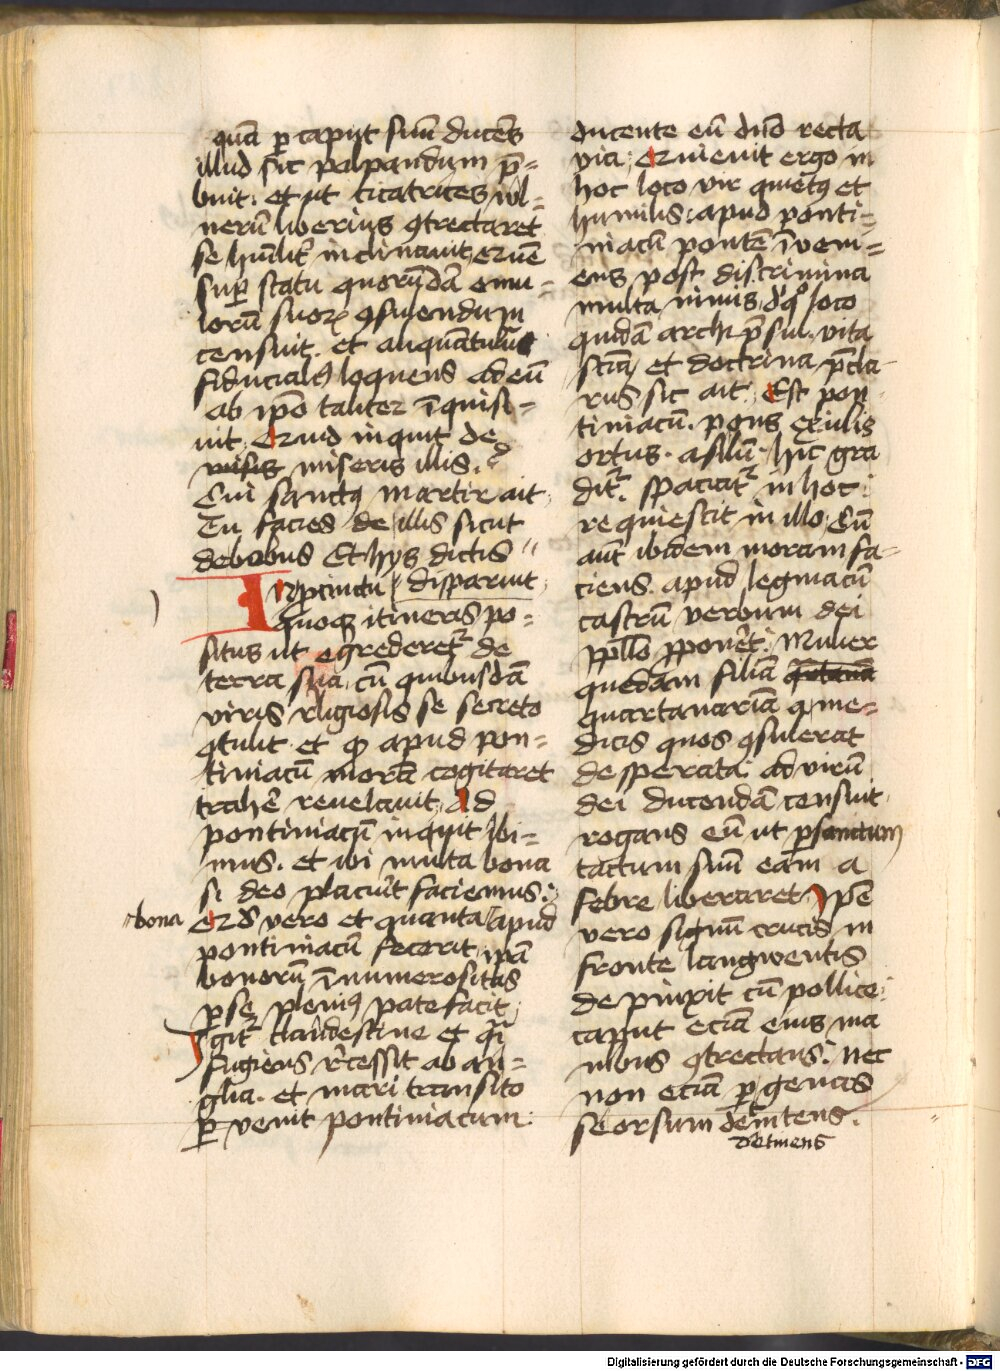 quā ꝑ caput suū ducēs
illud sic palpandum p̄-
buit. et ut cicatrices wl-
nerū liberius ꝯtrectaret
se hūilit᷑ inclinauit
suꝑ statu quorūdā emu-
lorū suoꝝ ꝯsulendum
censuit. et aliquantulū
fiducialiꝰ loquens ad eū
ab ip̄o taliter īquisi-
uit. Quid inquit de
miseris illis.
Cui sanctꝰ martir ait
Tu facies de illis sicut
debebus Et hys dictis
disparuit
In pcinctu
quoqꝫ itineris po-
situs ut egrederet᷑ de
terra sua, cū quibusdā
viris religiosis se secreto
ꝯtulit et ꝙ apud pon-
tiniacū morā cogitaret
trahē reuelauit. Ad
pontiniacū inquit ibi-
mus. et ibi multa bona
si deo placuīt faciemus.
vero et quanta apud
bona
pontiniacū fecerit, ipā
bonorū īnumerositas
ꝑ se pleniꝰ patefacit
Igit᷑ clandestine et q̄i
fugiens recessit ab an-
glia. et mari transito
ꝑuenit pontiniacum.
ducente eū dn̄o recta
via. ergo in
hoc loco vir quietꝰ et
humilis. apud ponti-
niacū pontē īueni-
ens post discrimina
multa nimis, loco
quidā archip̄sul. vita
sciā et doctrina p̄cla-
rus sic ait. Est pon
tiniacū. pons exulis
ortus. asilū. hic gra
dit᷑. spaciat᷑ in hoc.
requiescit in illo. Cū
aūt ibidem moram fa-
ciens. apud legniacū
castrū verbum dei
pplo ꝓponeret. Mulier
quedam filiā
quartanariā a me-
dicis quos ꝯsulerat
desperatā ad virū
dei ducendā censuit
rogans eū ut ꝑ sanctum
tactum suū eam a
febre liberaret. Ipse
vero signū crucis in
fronte langwentis
depinxit cū pollice.
caput eciā eius ma
nibus ꝯtrectans. nec
non eciā ꝑ genas
seorsum
detinens
Digitalisierung gefördert durch die Deutsche Forschungsgemeinschaft - DFG